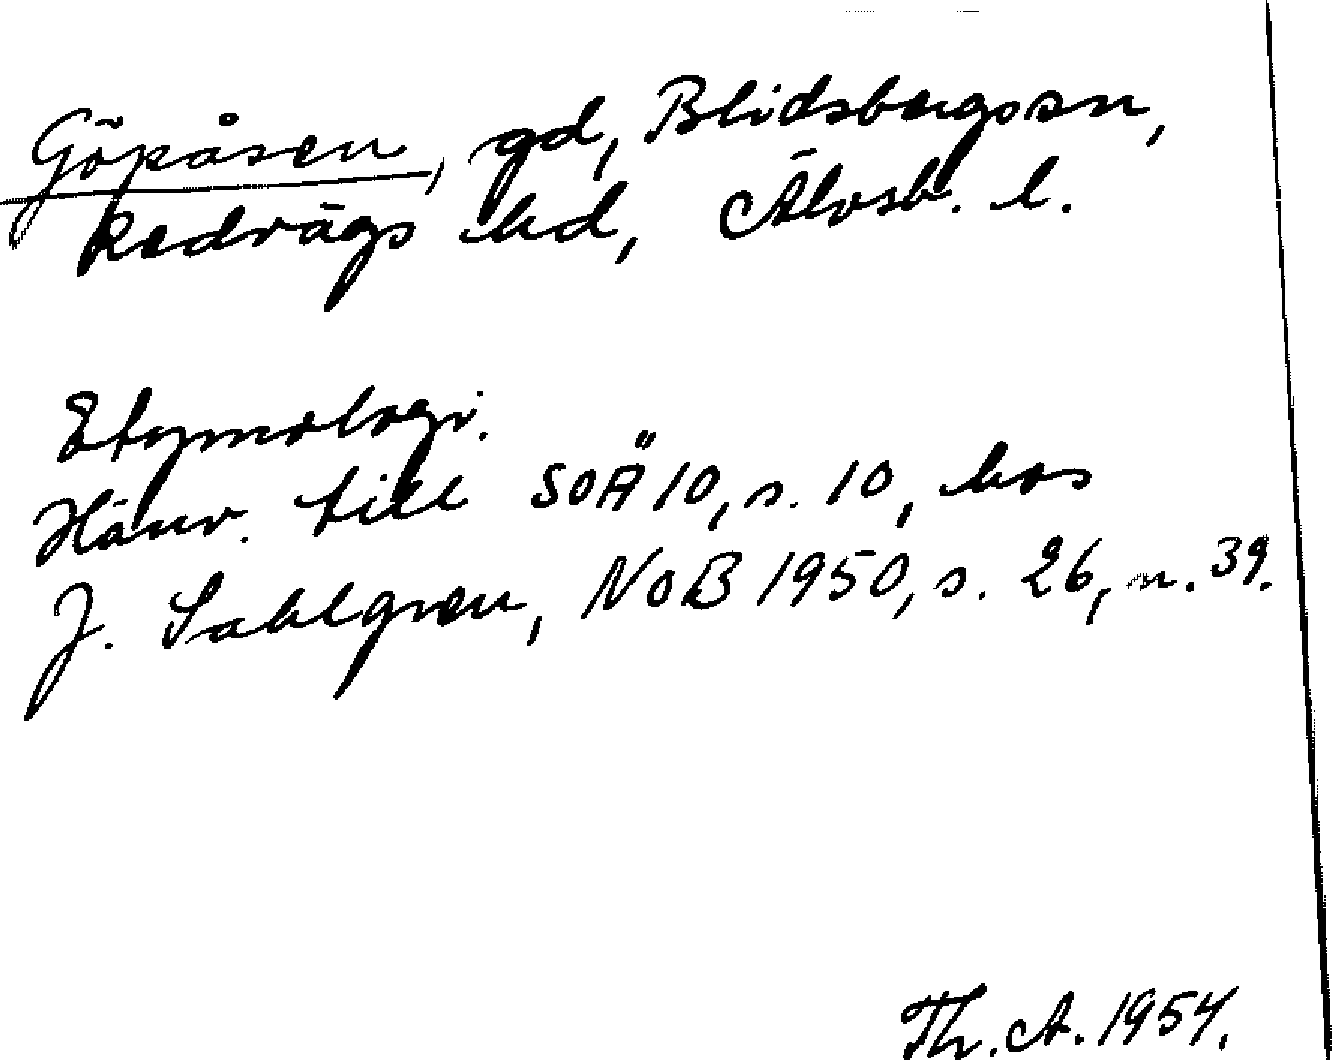 Göpåsen, gd, Blidsbergs sn,
Redvägs hd, Älvsb. l.
Etymologi.
Hänv. till SOÄ 10, s. 10, hos
J. Sahlgren, NoB 1950, s. 26, n. 39.
Th. A. 1954.